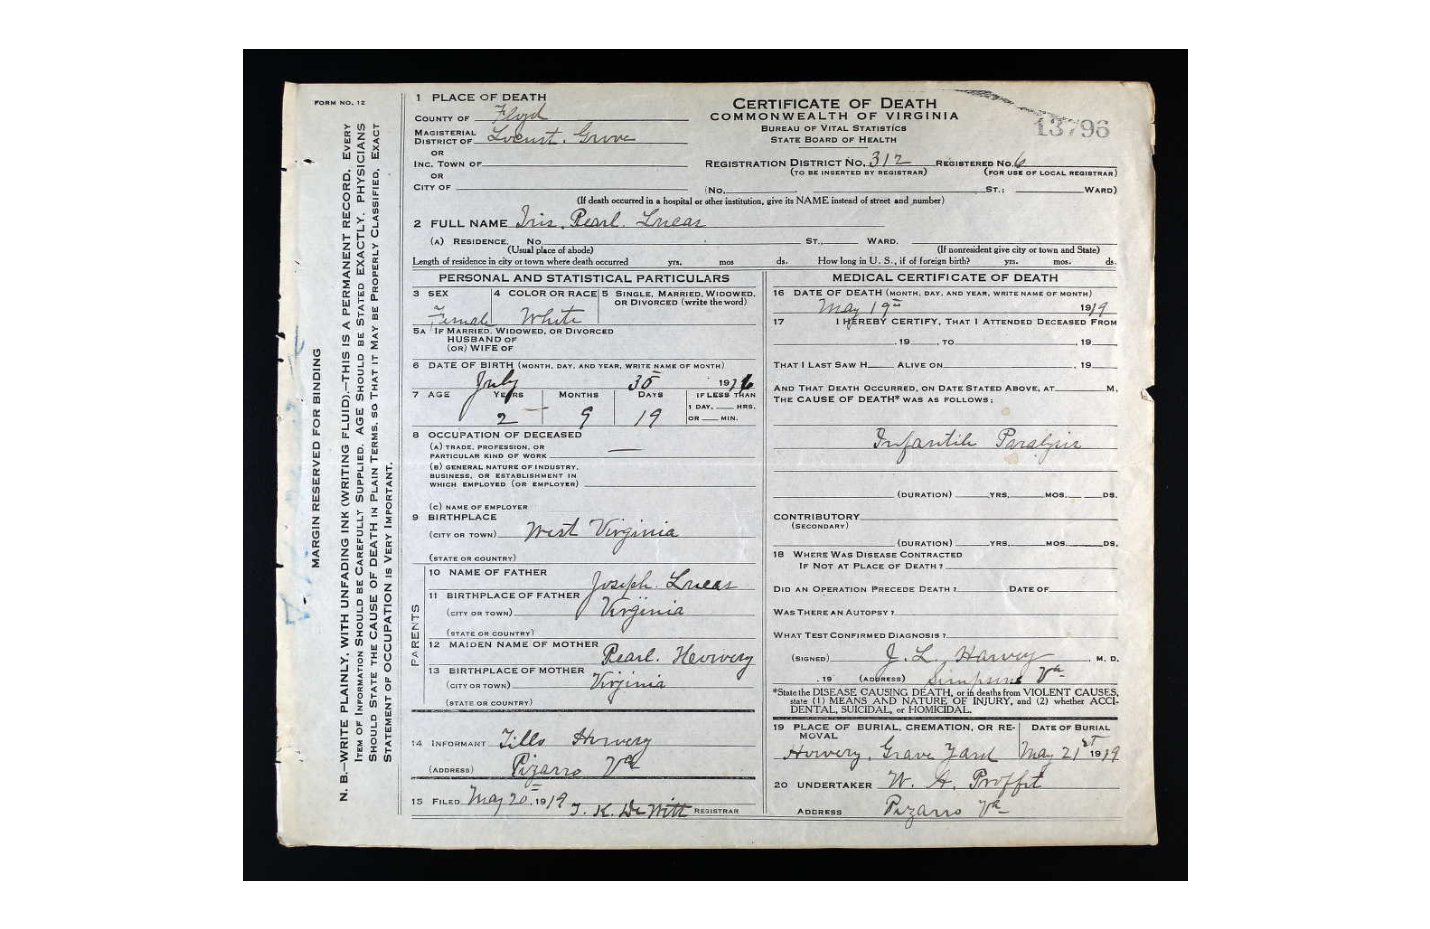 FORM NO. 12
MARGIN RESERVED FOR BINDING
N. B.—WRITE PLAINLY, WITH UNFADING INK (WRITING FLUID).—THIS IS A PERMANENT RECORD. EVERY
ITEM OF INFORMATION SHOULD BE CAREFULLY SUPPLIED. AGE SHOULD BE STATED EXACTLY. PHYSICIANS
SHOULD STATE THE CAUSE OF DEATH IN PLAIN TERMS, SO THAT IT MAY BE PROPERLY CLASSIFIED. EXACT
STATEMENT OF OCCUPATION IS VERY IMPORTANT.
1 PLACE OF DEATH
COUNTY OF Floyd
MAGISTERIAL DISTRICT OF Locust Grove
OR
INC. TOWN OF
OR
CITY OF
CERTIFICATE OF DEATH
COMMONWEALTH OF VIRGINIA
BUREAU OF VITAL STATISTICS
STATE BOARD OF HEALTH
13796
REGISTRATION DISTRICT NO. 312 REGISTERED NO. 6
(TO BE INSERTED BY REGISTRAR) (FOR USE OF LOCAL REGISTRAR)
(No. ST.; WARD)
(If death occurred in a hospital or other institution, give its NAME instead of street and number)
2 FULL NAME Iris Pearl Lucas
(A) RESIDENCE, No. ST., WARD.
(Usual place of abode) (If nonresident give city or town and State)
Length of residence in city or town where death occurred yrs. mos ds. How long in U. S., if of foreign birth? yrs. mos. ds.
PERSONAL AND STATISTICAL PARTICULARS
3 SEX 4 COLOR OR RACE 5 SINGLE, MARRIED, WIDOWED, OR DIVORCED (write the word)
Female White
5A IF MARRIED, WIDOWED, OR DIVORCED
HUSBAND OF
(OR) WIFE OF
6 DATE OF BIRTH (MONTH, DAY, AND YEAR, WRITE NAME OF MONTH)
July 30 1916
7 AGE YEARS MONTHS DAYS IF LESS THAN
1 DAY, HRS.
OR MIN.
2 9 19
8 OCCUPATION OF DECEASED
(A) TRADE, PROFESSION, OR
PARTICULAR KIND OF WORK —
(B) GENERAL NATURE OF INDUSTRY,
BUSINESS, OR ESTABLISHMENT IN
WHICH EMPLOYED (OR EMPLOYER)
(C) NAME OF EMPLOYER
9 BIRTHPLACE
(CITY OR TOWN) West Virginia
(STATE OR COUNTRY)
PARENTS
10 NAME OF FATHER Joseph Lucas
11 BIRTHPLACE OF FATHER
(CITY OR TOWN) Virginia
(STATE OR COUNTRY)
12 MAIDEN NAME OF MOTHER Pearl Howery
13 BIRTHPLACE OF MOTHER
(CITY OR TOWN) Virginia
(STATE OR COUNTRY)
14 INFORMANT Howery
(ADDRESS) Pizarro Va
15 FILED May 20 1919 T. K. DeWitt REGISTRAR
MEDICAL CERTIFICATE OF DEATH
16 DATE OF DEATH (MONTH, DAY, AND YEAR, WRITE NAME OF MONTH)
May 19th 1919
17 I HEREBY CERTIFY, THAT I ATTENDED DECEASED FROM
, 19 , TO , 19
THAT I LAST SAW H ALIVE ON , 19
AND THAT DEATH OCCURRED, ON DATE STATED ABOVE, AT M.
THE CAUSE OF DEATH* WAS AS FOLLOWS:
Infantile Paralysis
(DURATION) YRS. MOS. DS.
CONTRIBUTORY
(SECONDARY)
(DURATION) YRS. MOS. DS.
18 WHERE WAS DISEASE CONTRACTED
IF NOT AT PLACE OF DEATH?
DID AN OPERATION PRECEDE DEATH? DATE OF
WAS THERE AN AUTOPSY?
WHAT TEST CONFIRMED DIAGNOSIS?
(SIGNED) J. L. Harvey M. D.
, 19 (ADDRESS) Simpsons Va
*State the DISEASE CAUSING DEATH, or in deaths from VIOLENT CAUSES,
state (1) MEANS AND NATURE OF INJURY, and (2) whether ACCI-
DENTAL, SUICIDAL, or HOMICIDAL.
19 PLACE OF BURIAL, CREMATION, OR RE-
MOVAL DATE OF BURIAL
Howery Grave Yard May 21st 1919
20 UNDERTAKER W. A. Proffit
ADDRESS Pizarro Va